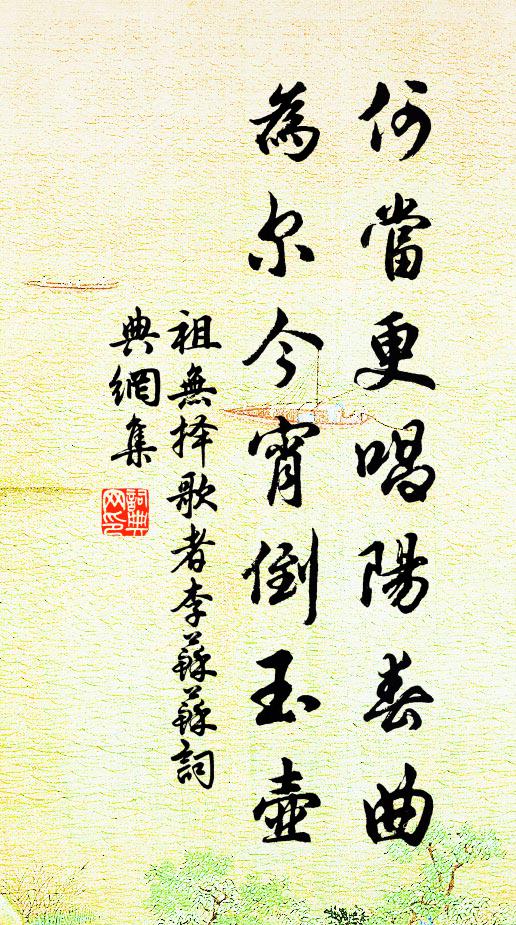 何當更唱陽春曲
為尔今宵倒玉壺
祖無择歌者李蘇蘇詞
典網集
詞典
网印